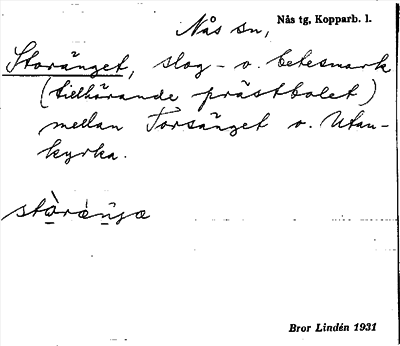 Nås sn, Nås tg, Kopparb. l.
Storänget, slog- o. betesmark
(tillhörande prästbolet)
mellan Torsänget o. Utan-
kyrka.
Bror Lindén 1931